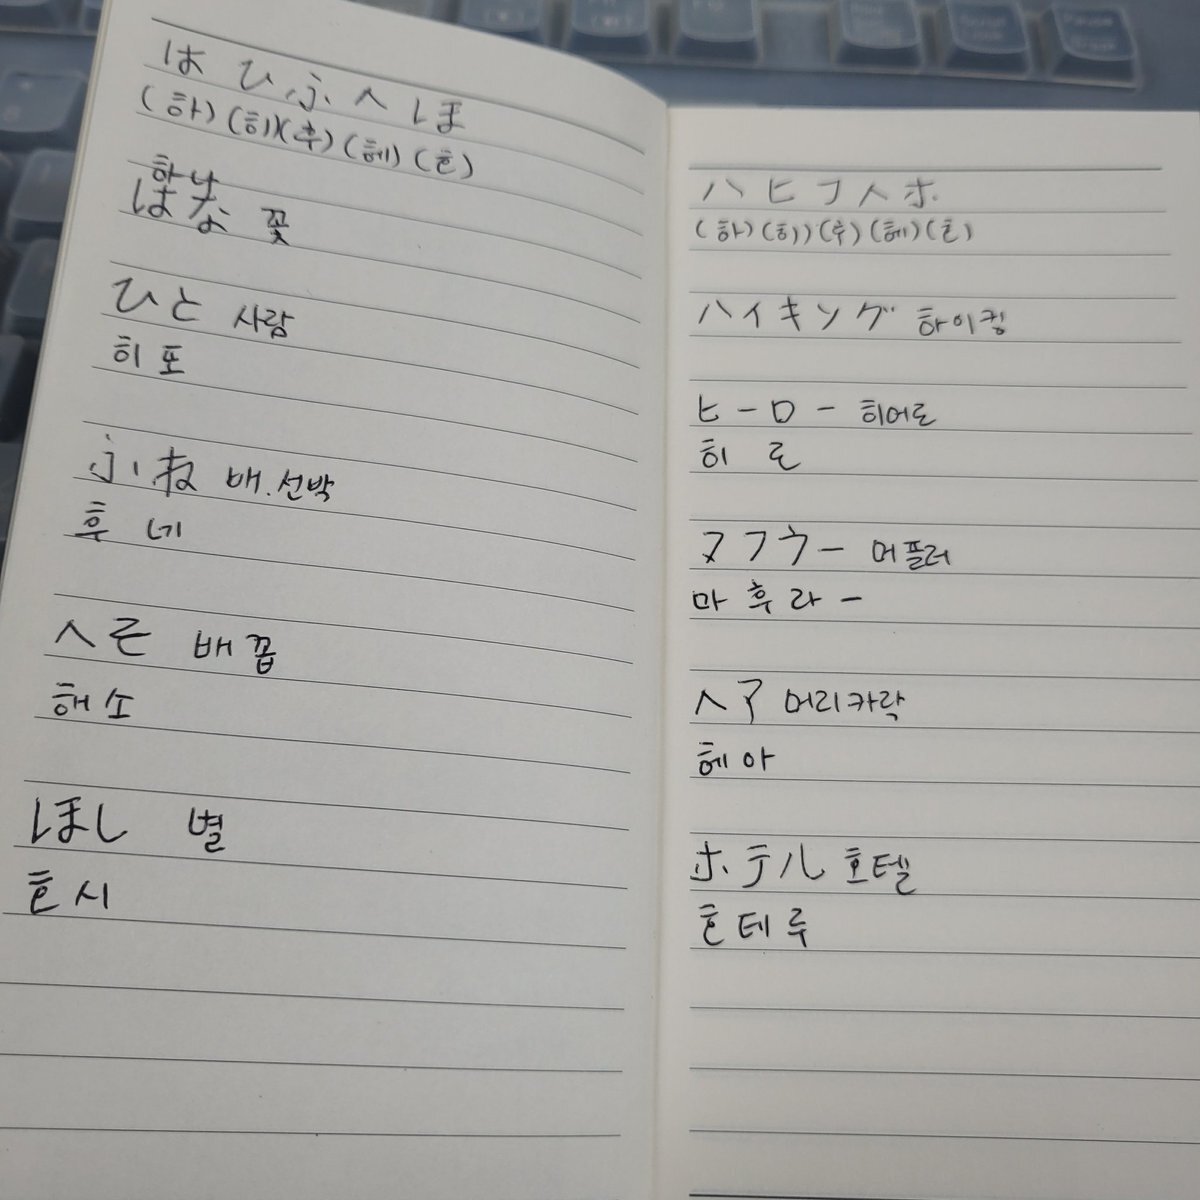 は ひ ふ へ ほ
(하) (히) (후) (헤) (호)
하나
はな 꽃
ひと 사람
히포
ふね 배.선박
후네
へそ 배꼽
해소
ほし 별
호시
ハ ヒ フ ヘ ホ
(하) (히) (후) (헤) (호)
ハイキング 하이킹
ヒーロー 히어로
히로
ヌフウー 머플러
마후라ー
ヘア 머리카락
헤아
ホテル 호텔
호테루